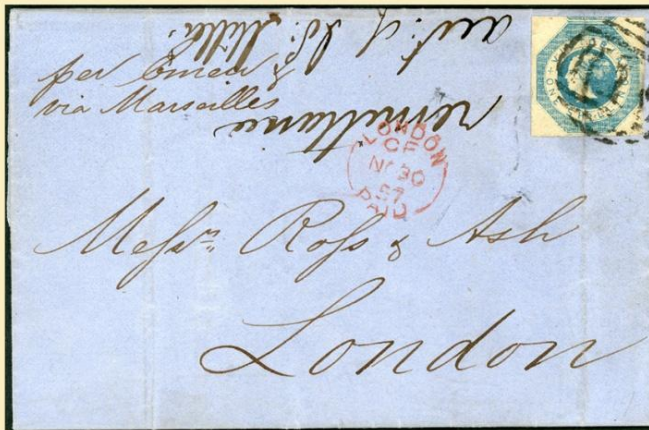 per Emeu
via Marseilles
remittance
LONDON
CF
NO 30
57
PAID
Messrs Ross & Ash
London